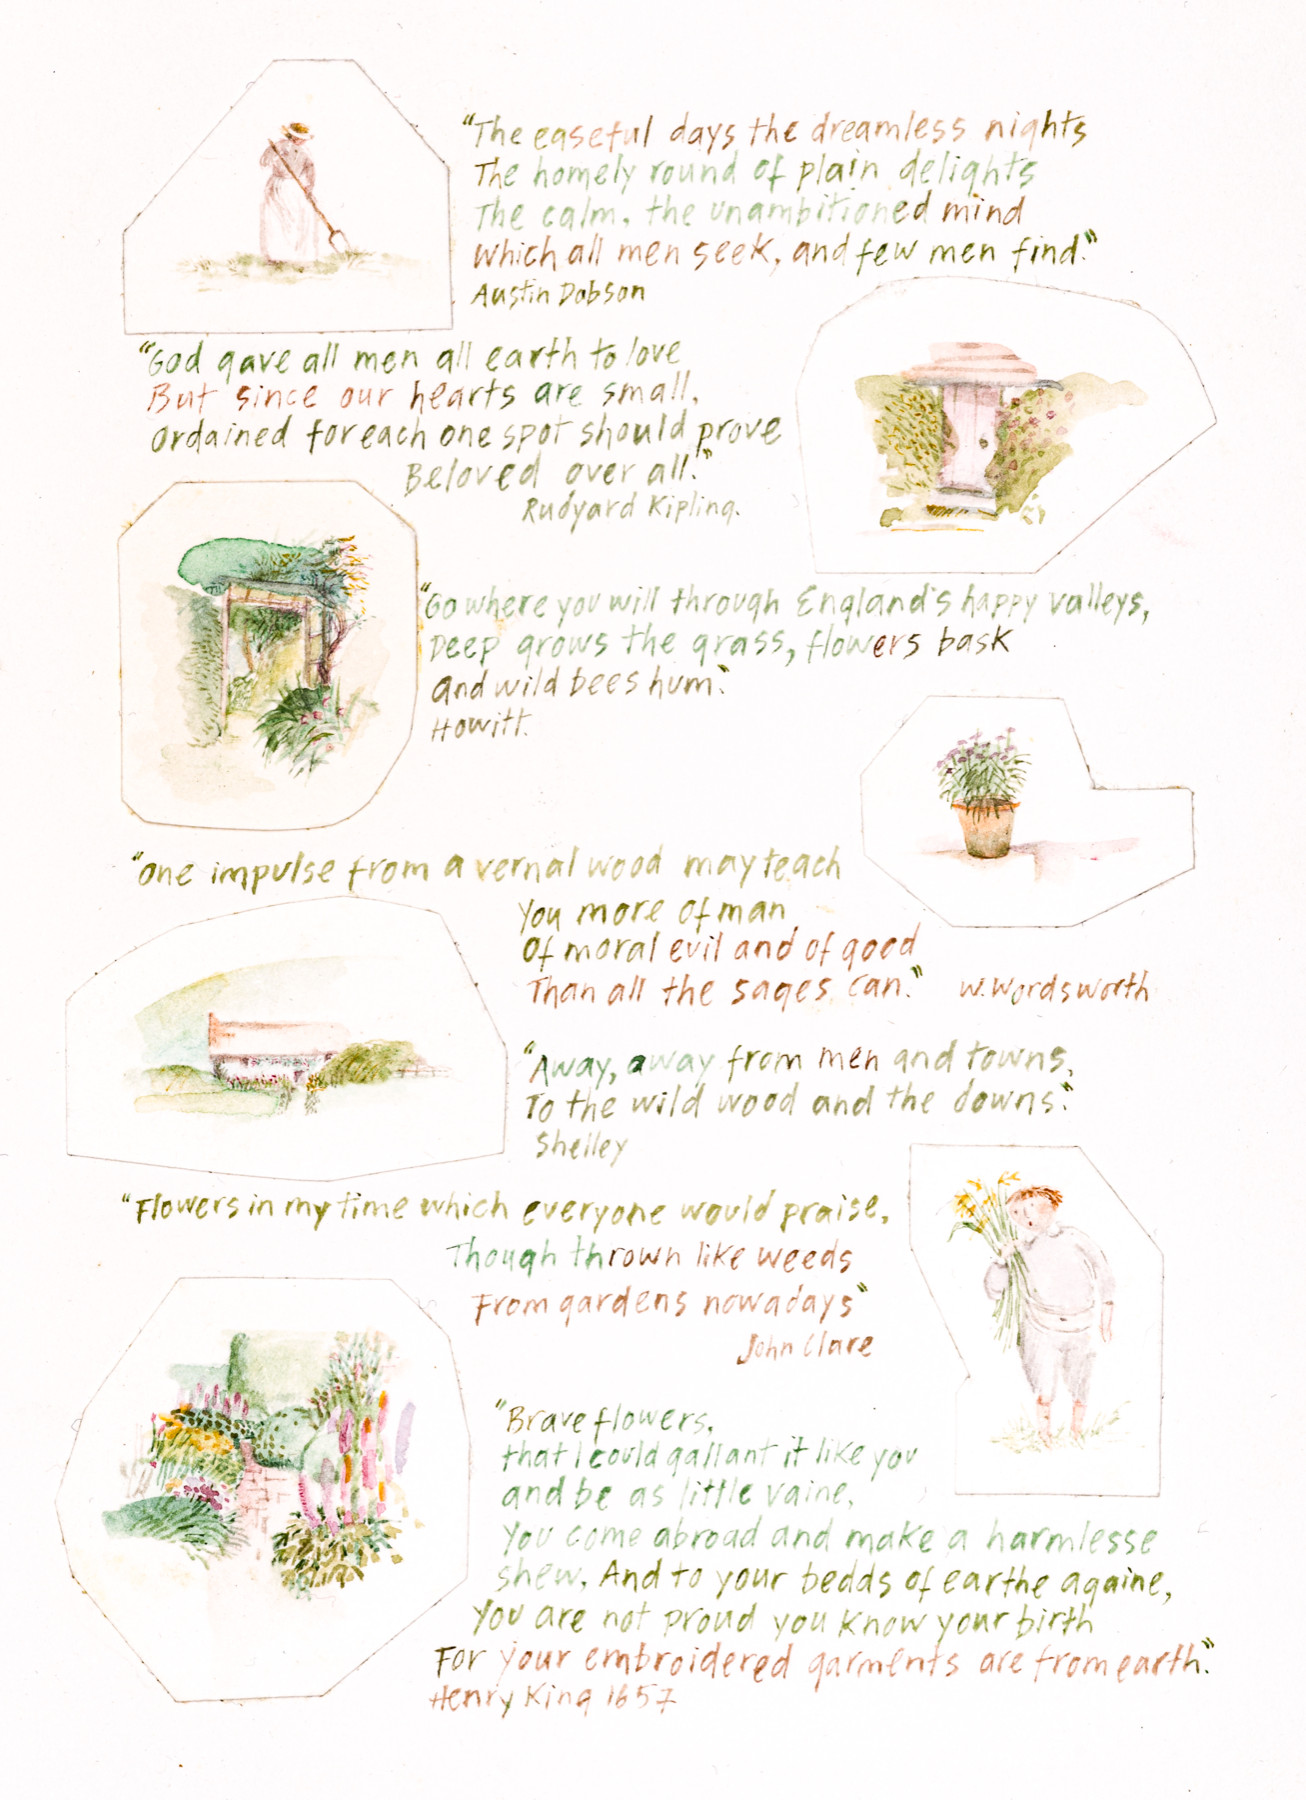 "The easeful days the dreamless nights
The homely round of plain delights
The calm, the unambitioned mind
Which all men seek, and few men find."
Austin Dobson
"God gave all men all earth to love
But since our hearts are small,
Ordained for each one spot should prove
Beloved over all."
Rudyard Kipling.
"Go where you will through England's happy valleys,
Deep grows the grass, flowers bask
and wild bees hum."
Howitt.
"One impulse from a vernal wood may teach
You more of man
Of moral evil and of good
Than all the sages can." W. Wordsworth
"Away, away from men and towns,
To the wild wood and the downs."
Shelley
"Flowers in my time which everyone would praise,
Though thrown like weeds
From gardens nowadays"
John Clare
"Brave flowers,
that I could gallant it like you
and be as little vaine,
You come abroad and make a harmlesse
shew, And to your bedds of earthe againe,
You are not proud you know your birth
For your embroidered garments are from earth."
Henry King 1657